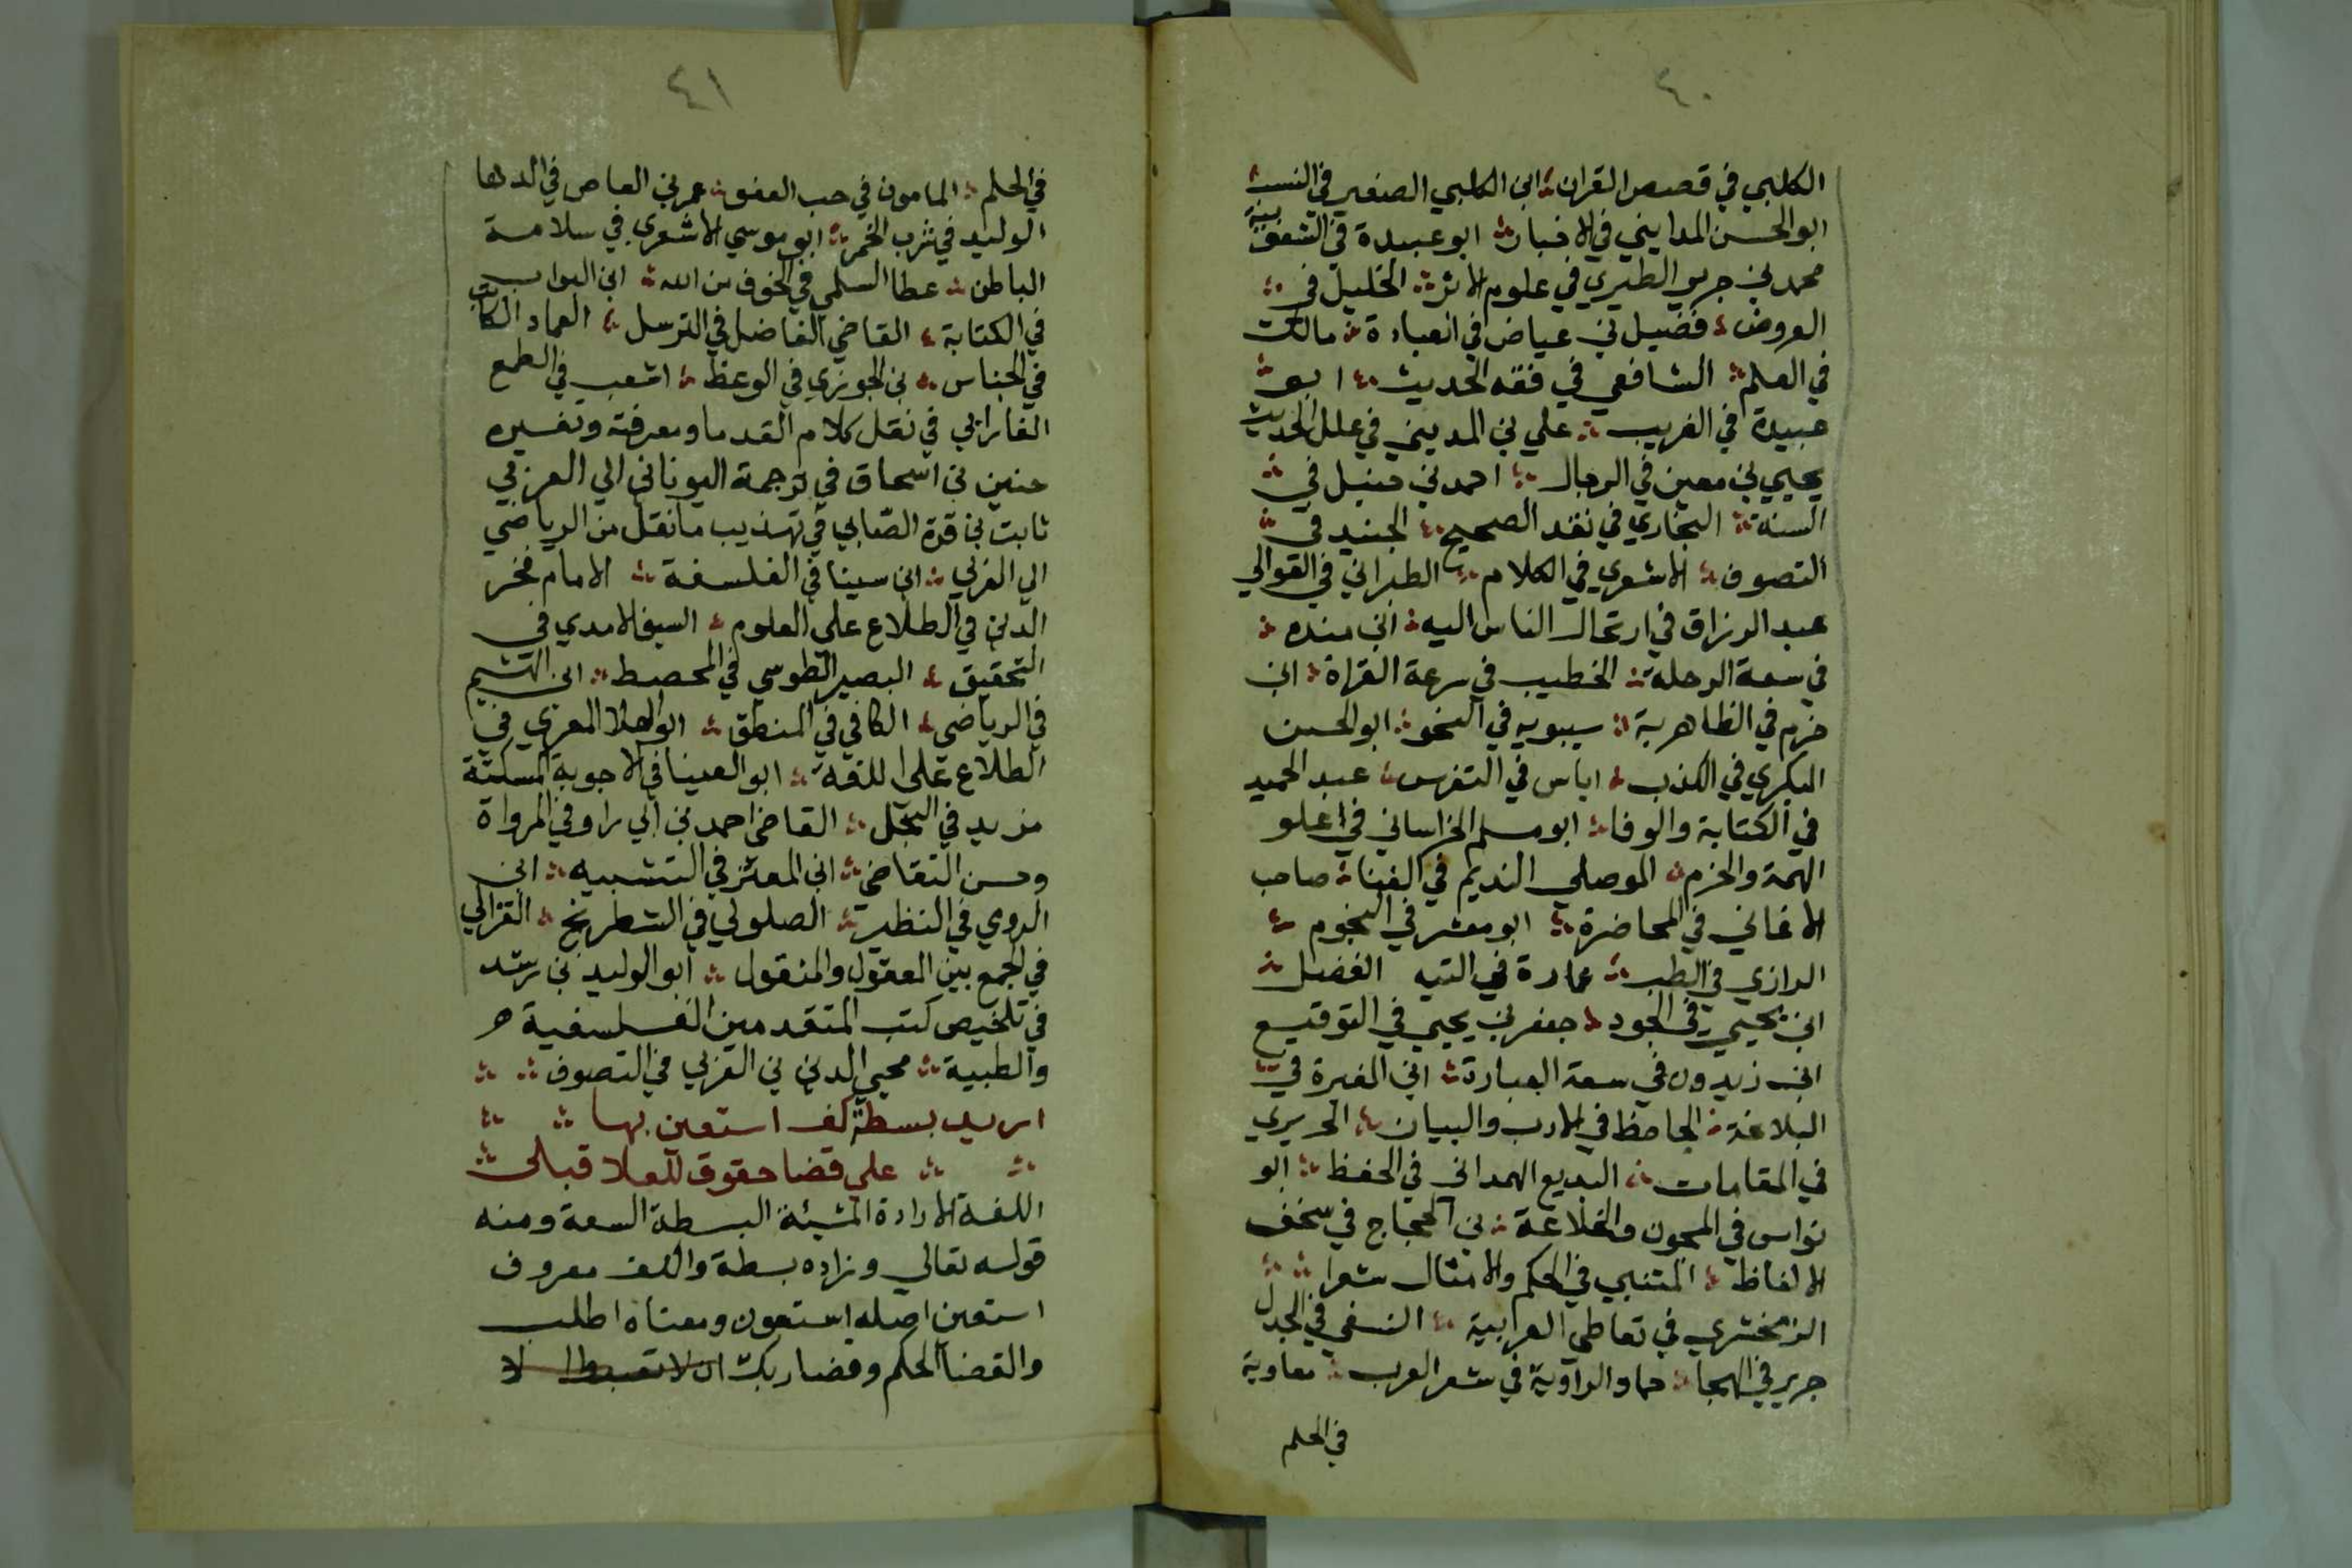 ٤٠
الكلبي في قصص القران ابن الكلبي الصغير في النسب
ابو الحسن المدايني في الاخبار ابو عبيدة في الشعوبية
محمد بن جرير الطبري في علوم الاثر الخليل في
العروض فضيل بن عياض في العبادة مالك
في العلم الشافعي في فقه الحديث ابو
عبيدة في الغريب علي بن المديني في علل الحديث
يحيي بن معين في الرجال احمد بن حنبل في
السنة البخاري في نقد الصحيح الجنيد في
التصوف الاشعري في الكلام الطبراني في القوالي
عبد الرزاق في ارتحال الناس اليه ابن منده
في سعة الرحلة الخطيب في سرعة القراة ابن
خزم في الظاهرية سيبويه في النحو ابو الحسن
البكري في الكذب اياس في التفرس عبد الحميد
في الكتابة والوفا ابو مسلم الخراساني في اعلو
الهمة والحزم الموصلي النديم في الغنا صاحب
الاغاني في المحاضرة ابو معشر في النجوم
الرازي في الطب عمارة في التيه الفضل
ابن يحيي في الجود جعفر بن يحيي في التوقيع
ابن زيدون في سعة العبارة ابن المغيرة في
البلاغة الجاحظ في الادب والبيان الحريري
في المقامات البديع الهمداني في الحفظ ابو
نواس في المجون والخلاعة بن الحجاج في سخف
الالفاظ المتنبي في الحكم والامثال شعرا
الزمخشري في تعاطي العرابية النسفي في الجدل
جرير في الهجا حماد الراوية في شعر العرب معاوية
في الحلم
٤١
في الحلم المامون في حب العفو عمر بن العاص في الدها
الوليد في شرب الخمر ابو موسي الاشعري في سلامة
الباطن عطا السلمي في الخوف من الله ابن البواب
في الكتابة القاضي الفاضل في الترسل العماد الكاتب
في الجناس بن الجوزي في الوعظ اشعب في الطمع
الفارابي في نقل كلام القدما ومعرفته وتفسيره
حنين بن اسحاق في ترجمة اليوناني الي العربي
ثابت بن قرة الصابي في تهذيب ما نقل من الرياضي
الي العربي ابن سينا في الفلسفة الامام فخر
الدين في الطلاع علي العلوم السيف الامدي في
التحقيق البصير الطوسي في المحصط ابن الهشيم
في الرياضي الكافي في المنطق ابو العلا المعري في
الطلاع علي اللغة ابو العينا في الاجوبة المسكتة
مزيد في البخل القاضي احمد بن ابي راود في المرواة
وحسن التقاضي ابن المعتز في التشبيه ابن
الروي في التطير الصلولي في الشطرنج الغزالي
في الجمع بين المعقول والمنقول ابو الوليد بن رشد
في تلخيص كتب المتقدمين الفلسفية
والطبية محيي الدين بن العربي في التصوف
اريد بسطة كف استعين بها
علي قضا حقوق للعلا قبلي
اللغة الارادة المشيئة البسطة السعة ومنه
قوله تعالي وزاده بسطة والكف معروف
استعين اصله استعون ومعناه اطلب
والقضا الحكم وقضا ربك ان لا